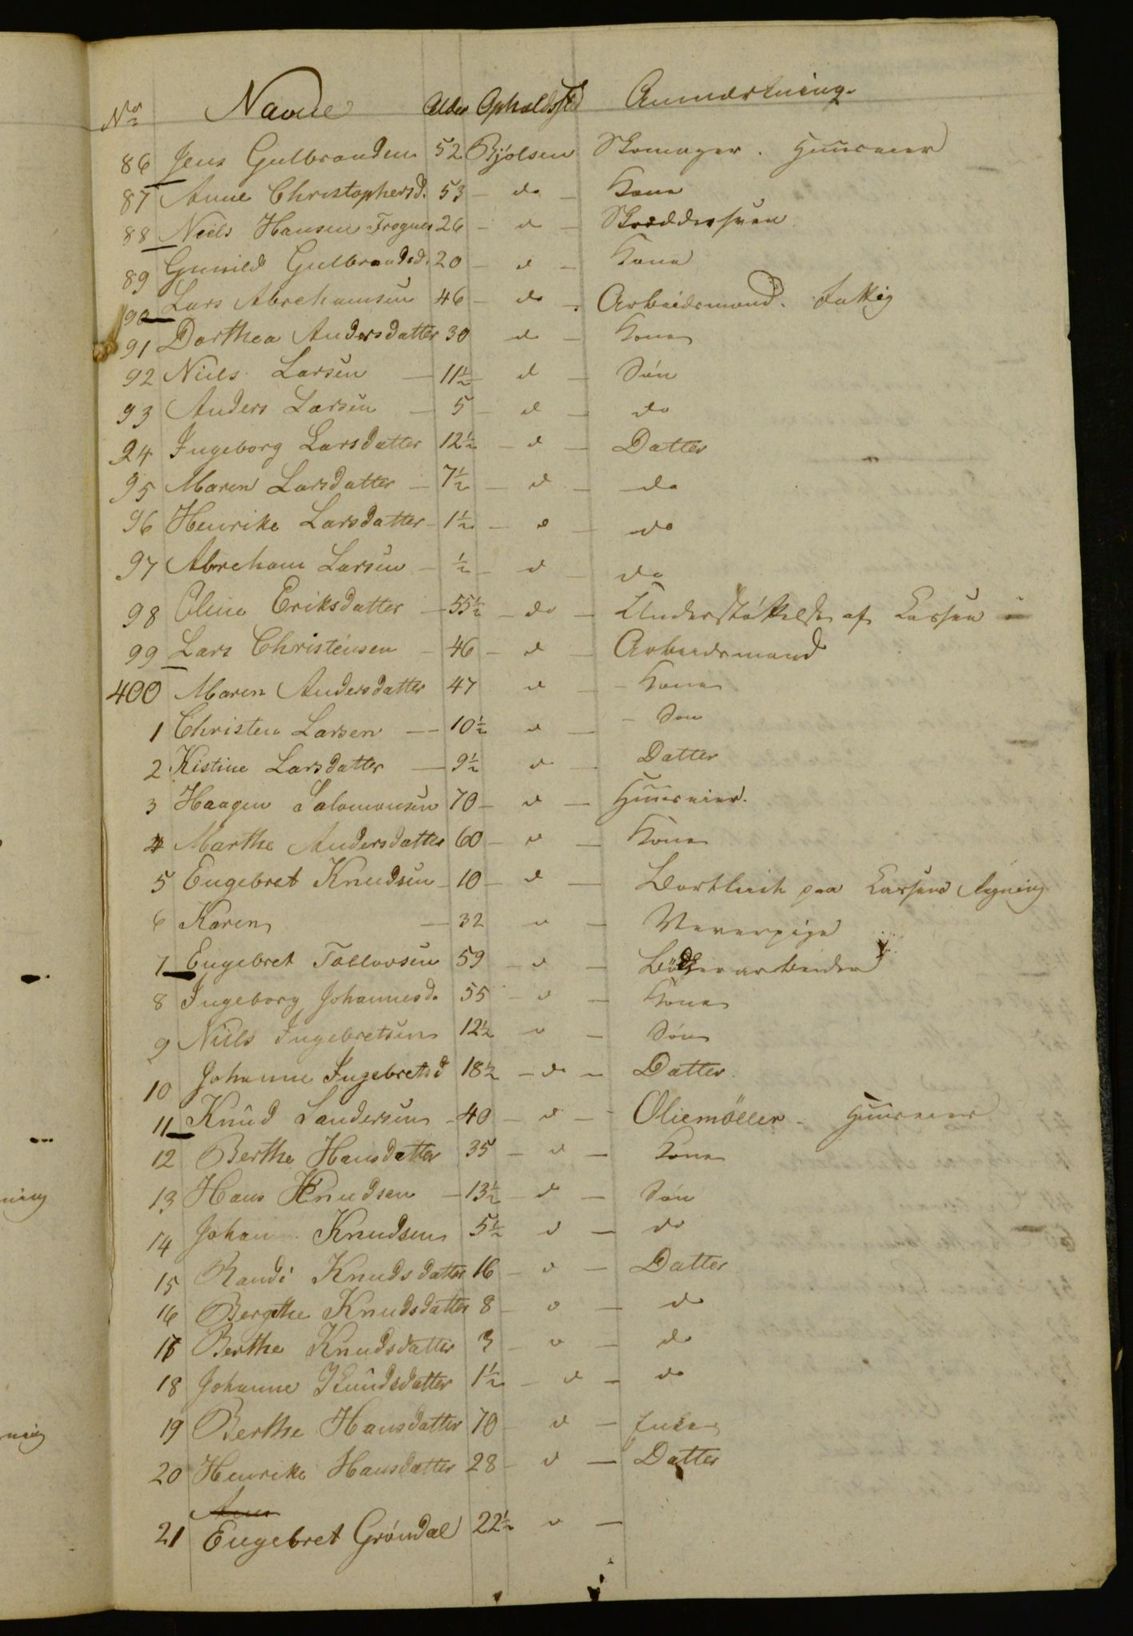 No Navne Alder Opholdssted Anmærkning
86 Jens Gulbrandsen 52 Bjölsen Skomager. Huuseier
87 Anne Christophersd. 53 - do - Kone
88 Niels Hansen Frogner 26 - d - Skrædersvend
89 Gunild Gulbrandsd. 20 - d - Kone
90 Lars Abrehamsen 46 - do - Arbeidsmand. fattig
91 Dorthea Andersdatter 30 d - Kone
92 Niels Larsen - 11½ - d - Sön
93 Anders Larsen - 5 - d - do
94 Ingeborg Larsdatter 12½ - d - Datter
95 Maren Larsdatter - 7½ - d - do
96 Henrike Larsdatter - 1½ - d - do
97 Abreham Larsen - ½ - d - do
98 Oline Eriksdatter - 55½ - do - Understöttelse af Kassen
99 Lars Christensen - 46 - d - Arbeidsmand
400 Maren Andersdatter 47 d - Kone
1 Christen Larsen - 10½ d - Sön
2 Kistine Larsdatter - 9½ d - Datter
3 Haagen Salomonsen 70 - d - Huuseier.
4 Marthe Andersdatter 60 - d - Kone
5 Engebret Knudsen - 10 - d - Bortleiet paa Kassens Regning
6 Karen - 32 d - Væverpige
7 Engebret Tollovsen 59 - d - Bödkerarbeider
8 Ingeborg Johannesd. 55 - d - Kone
9 Niels Ingebretsen 12½ - d - Sön
10 Johanne Ingebretsd 18½ - do - Datter
11 Knud Sandersen - 40 - d - Oliemöller - Huuseier
12 Berthe Hansdatter 35 - d - Kone
13 Hans Knudsen - 13½ - d - Sön
14 Johan Knudsen 5½ d - do
15 Randi Knudsdatter 16 - d - Datter
16 Bergthe Knudsdatter 8 - d - do
17 Berthe Knudsdatter 3 - d - do
18 Johanne Knudsdatter 1½ - d - do
19 Berthe Hansdatter 70 - d - Enke
20 Henrike Hansdatter 28 - d - Datter
21 Engebret Gröndal 22½ d -